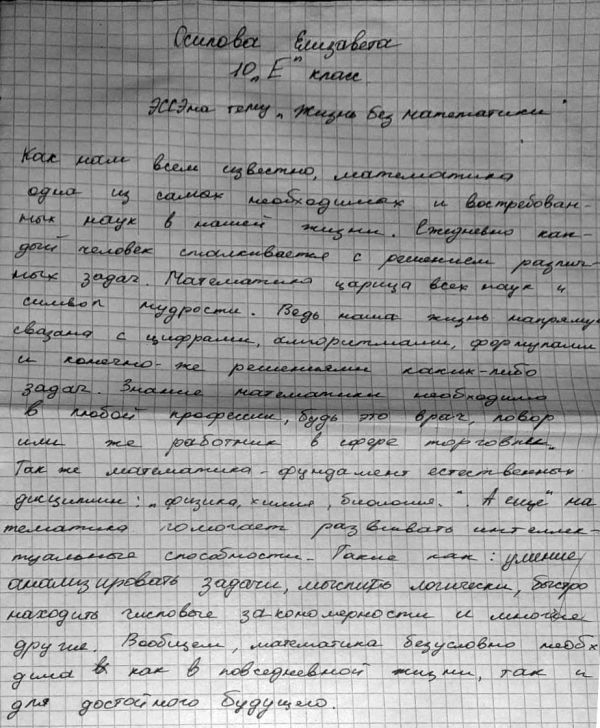 Осипова Елизавета
10 „Е" класс.
ЭССЭ на тему „Жизнь без математики"
Как нам всем известно, математика
одна из самых необходимых и востребован-
ных наук в нашей жизни. Ежедневно каж-
дый человек сталкивается с решением различ-
ных задач. Математика царица всех наук и
символ мудрости. Ведь наша жизнь напрямую
связана с цифрами, алгоритмами, формулами
и конечно-же решениями каких-либо
задач. Знание математики необходимо
в любой профессии, будь это врач, повар
или же работник в сфере торговли.
Так же математика - фундамент естественных
дисциплин: „физика, химия, биология.". А ещё ма
тематика помогает развивать интеллек-
туальные способности. Такие как: умение
анализировать задачи, мыслить логически, быстро
находить числовые закономерности и многие
другие. Вообщем, математика безусловно необх
дима как в повседневной жизни, так и
для достойного будущего.